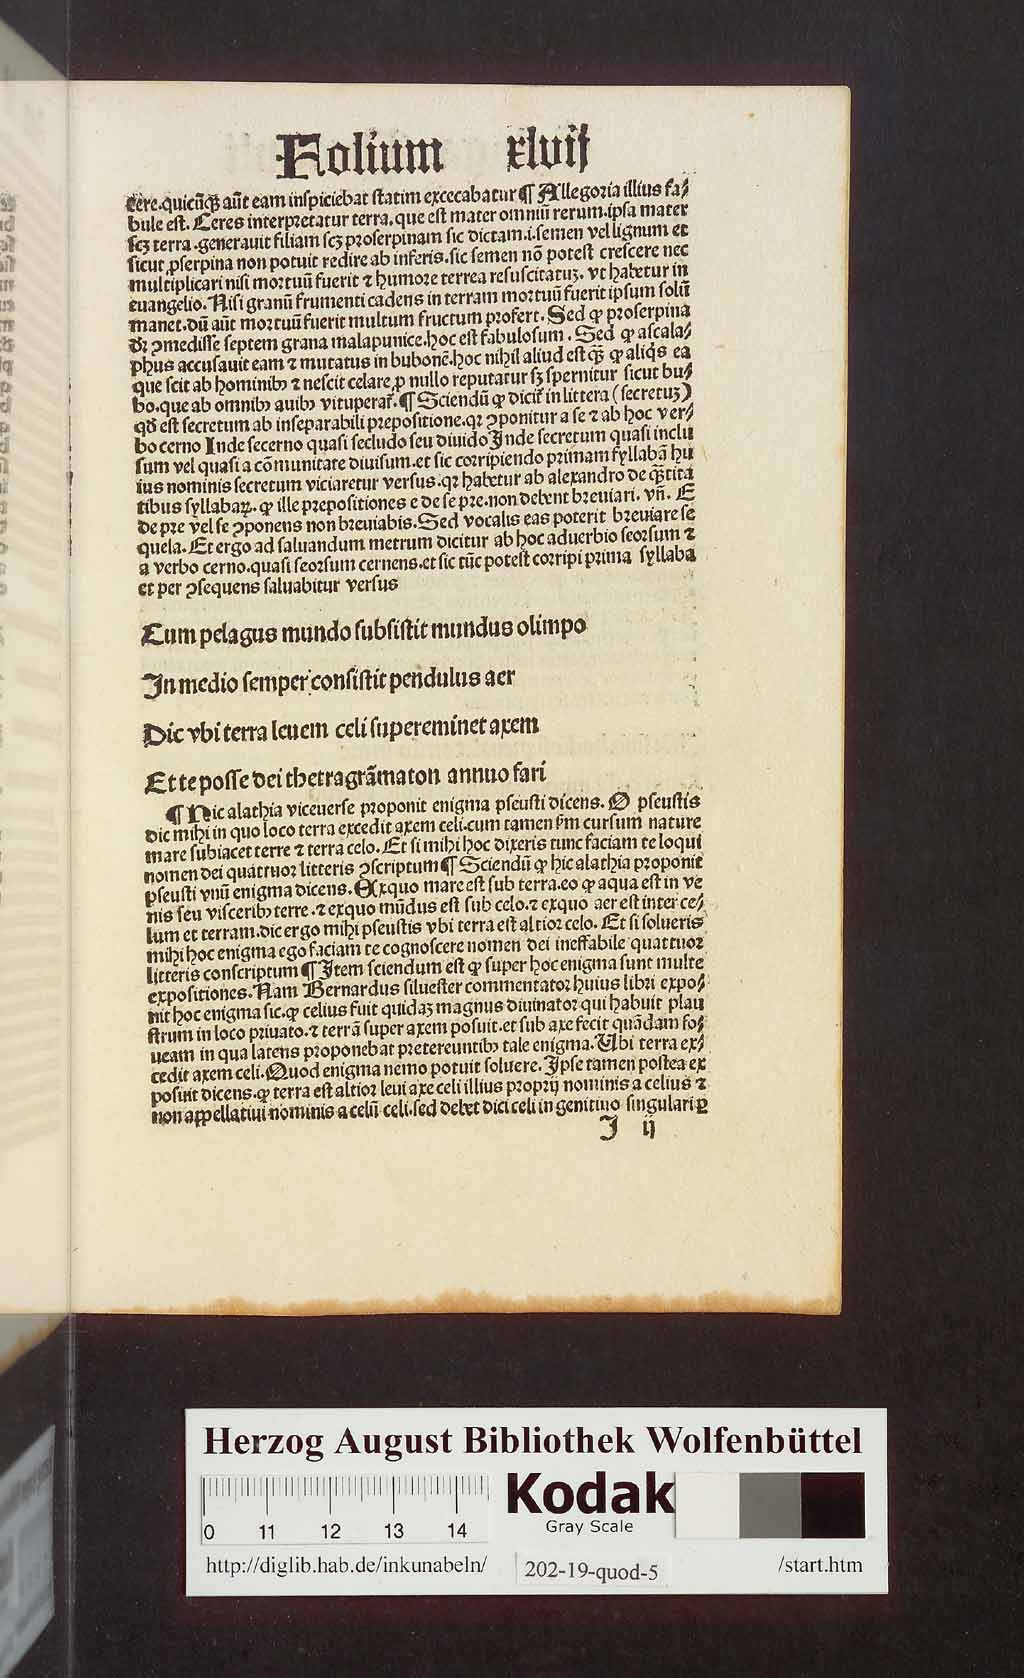 Folium xlvij
cere.quicūqꝫ aūt eam inspiciebat statim excecabatur¶ Allegoria illius fa⸗
bule est. Ceres interpretatur terra. que est mater omniū rerum.ipsa mater
scꝫ terra .generauit filiam scꝫ proserpinam sic dictam.i.semen vel lignum et
sicut ꝓserpina non potuit redire ab inferis.sic semen nō potest crescere nec
multiplicari nisi mortuū fuerit ⁊ humore terrea resuscitatuꝫ. vt habetur in
euangelio. Nisi granū frumenti cadens in terram mortuū fuerit ipsum solū
manet.dū aūt mortuū fuerit multum fructum profert. Sed ꝙ proserpina
dr̄ ꝯmedisse septem grana malapunice.hoc est fabulosum . Sed ꝙ ascala⸗
phus accusauit eam ⁊ mutatus in bubonē.hoc nihil aliud est qꝫ ꝙ aliqs ea
que scit ab hominibꝫ ⁊ nescit celare ꝓ nullo reputatur sꝫ spernitur sicut bu⸗
bo.que ab omnibꝫ auibꝫ vituperat̄.¶ Sciendū ꝙ dicit̄ in littera (secretuꝫ)
qd̄ est secretum ab inseparabili prepositione.qꝛ ꝯponitur a se ⁊ ab hoc ver⸗
bo cerno Inde secerno quasi secludo seu diuido Inde secretum quasi inclu
sum vel quasi a cōmunitate diuisum.et sic corripiendo primam syllabā hu
ius nominis secretum viciaretur versus.qꝛ habetur ab alexandro de qꝫtita
tibus syllabaꝝ. ꝙ ille prepositiones e de se pre.non debent breuiari. vn̄. E
de pre vel se ꝯponens non breuiabis.Sed vocalis eas poterit breuiare se
quela. Et ergo ad saluandum metrum dicitur ab hoc aduerbio seorsum ⁊
a verbo cerno.quasi seorsum cernens.et sic tūc potest corripi prima syllaba
et per ꝯsequens saluabitur versus
Cum pelagus mundo subsistit mundus olimpo
In medio semper consistit pendulus aer
Dic vbi terra leuem celi supereminet axem
Et te posse dei thetragrāmaton annuo fari
¶ Hic alathia viceuerse proponit enigma pseusti dicens. O pseustis
dic mihi in quo loco terra excedit axem celi.cum tamen sm̄ cursum nature
mare subiacet terre ⁊ terra celo. Et si mihi hoc dixeris tunc faciam te loqui
nomen dei quattuor litteris ꝯscriptum¶ Sciendū ꝙ hic alathia proponit
pseusti vnū enigma dicens. Exquo mare est sub terra.eo ꝙ aqua est in ve
nis seu visceribꝫ terre .⁊ exquo mūdus est sub celo.⁊ exquo aer est inter ce⸗
lum et terram.dic ergo mihi pseustis vbi terra est altior celo. Et si solueris
mihi hoc enigma ego faciam te cognoscere nomen dei ineffabile quattuor
litteris conscriptum ¶ Item sciendum est ꝙ super hoc enigma sunt multe
expositiones. Nam Bernardus siluester commentator huius libri expo⸗
nit hoc enigma sic.ꝙ celius fuit quidaꝫ magnus diuinator qui habuit plau
strum in loco priuato.⁊ terrā super axem posuit.et sub axe fecit quādam fo⸗
ueam in qua latens proponebat pretereuntibꝫ tale enigma. Vbi terra ex⸗
cedit axem celi. Quod enigma nemo potuit soluere. Ipse tamen postea ex
posuit dicens.ꝙ terra est altior leui axe celi illius proprij nominis a celius ⁊
non appellatiui nominis a celū celi.sed debet dici celi in genitiuo singulari ꝑ
I ij
Herzog August Bibliothek Wolfenbüttel
Kodak
Gray Scale
0 11 12 13 14
http://diglib.hab.de/inkunabeln/ 202-19-quod-5 /start.htm